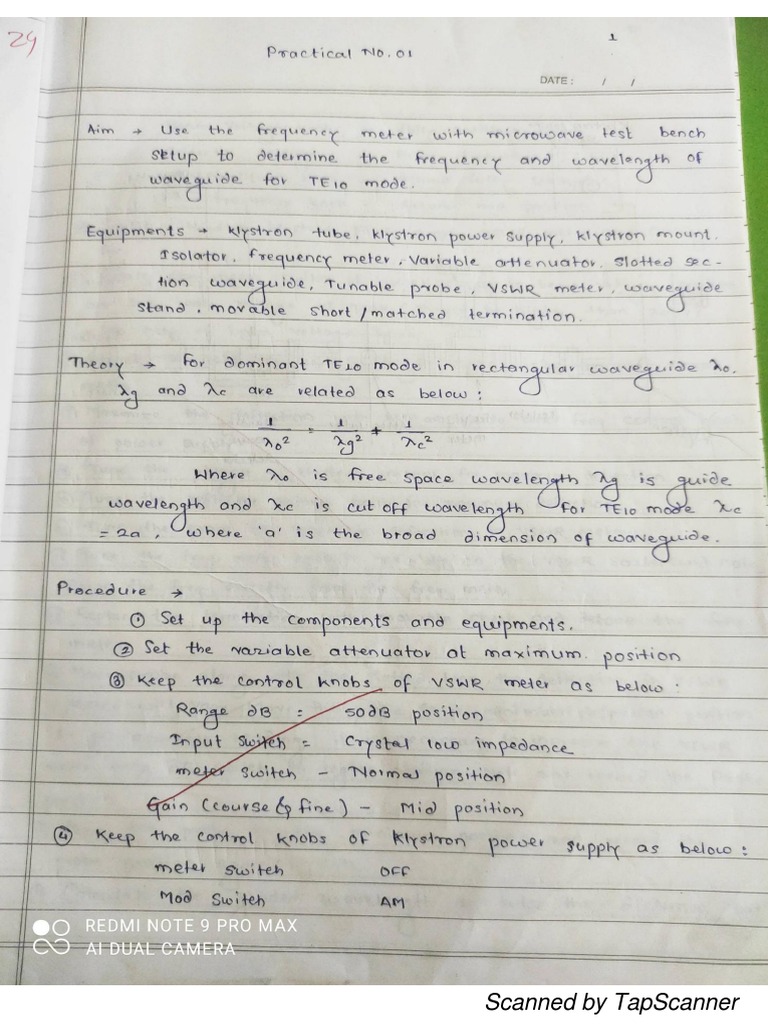 24
1
Practical No. 01
DATE: / /
Aim → Use the frequency meter with microwave test bench
setup to determine the frequency and wavelength of
waveguide for TE10 mode.
Equipments → Klystron tube, Klystron power supply, Klystron mount.
Isolator, frequency meter, Variable attenuator, Slotted sec-
tion waveguide, Tunable probe, VSWR meter, waveguide
Stand, movable short/matched termination.
Theory → For dominant TE10 mode in rectangular waveguide λ0.
λg and λc are related as below:
1/λ0² = 1/λg² + 1/λc²
Where λ0 is free space wavelength λg is guide
wavelength and λc is cut off wavelength for TE10 mode λc
= 2a, where 'a' is the broad dimension of waveguide.
Procedure →
① Set up the components and equipments.
② Set the variable attenuator at maximum. position
③ Keep the control knobs of VSWR meter as below:
Range dB : 50dB position
Input Switch = Crystal low impedance
meter switch - Normal position
Gain (course & fine) - Mid position
④ Keep the control knobs of Klystron power supply as below:
meter switch OFF
Mod Switch AM
REDMI NOTE 9 PRO MAX
AI DUAL CAMERA
Scanned by TapScanner